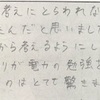 考えにとらわれな
たんだと思いまし
から考えるようにし
りが電力の勉強を
のはとても驚き